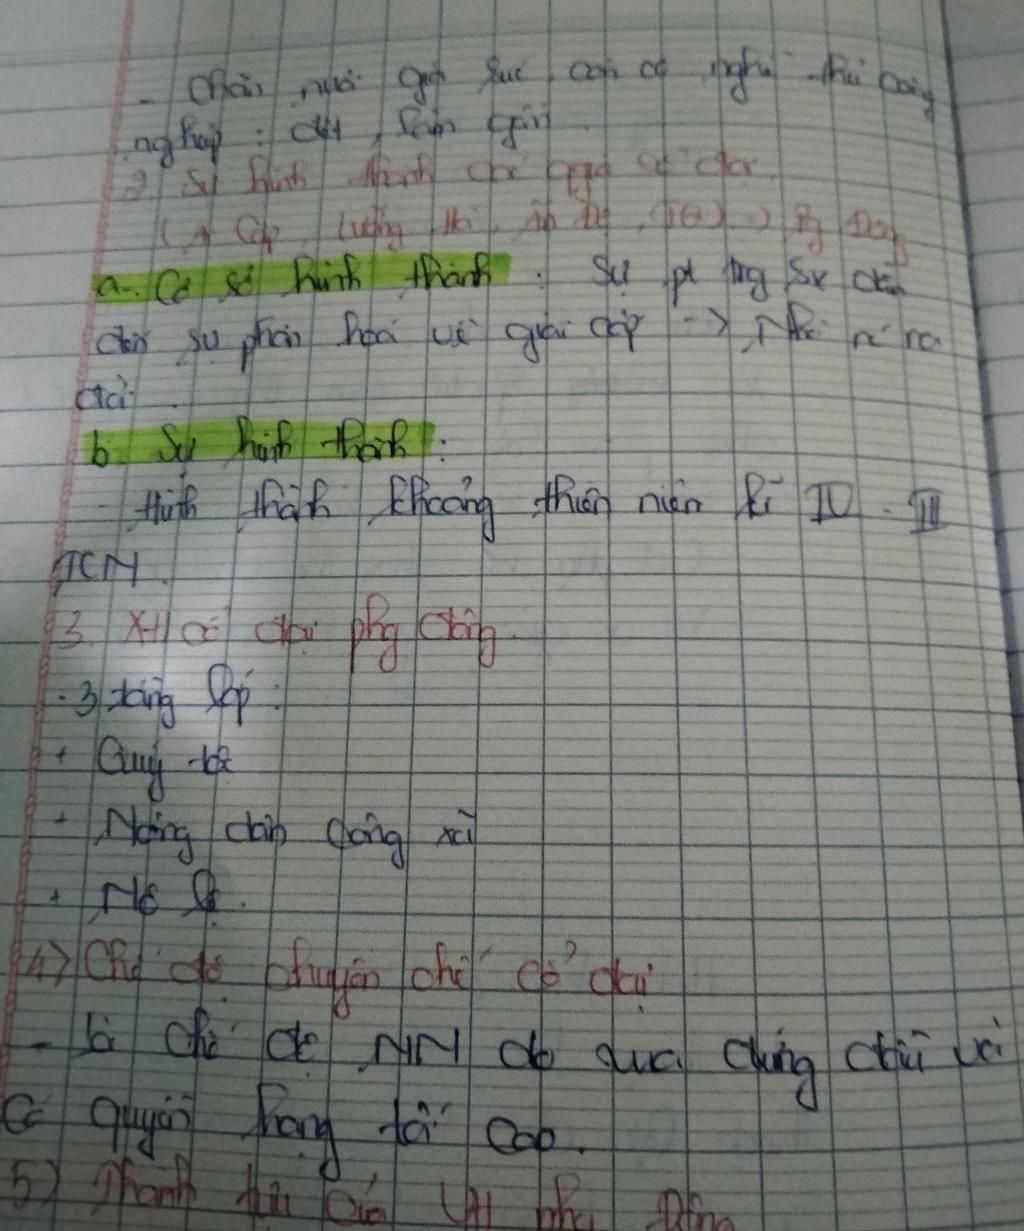 - Chăn nuôi gia súc, còn có nghề thủ công
nghiệp: dệt, làm gốm
2) Sự hình thành các quốc gia cổ đại.
Lưỡng Hà, Ấn Độ, TQ) P Đông
a. Cơ sở hình thành: Sự pt trg sx dẫn
đến sự phân hoá về giai cấp -> Nhà nc ra
đời.
b. Sự hình thành:
- Hình thành khoảng thiên niên kỉ IV - III
TCN.
3 XH cổ đại phg Đông.
. 3 tầng lớp:
+ Quý tộc
+ Nông dân công xã
+ Nô lệ.
4) Chế độ chuyên chế cổ đại
- Là chế độ NN do vua đứng đầu và
Có quyền hạng tối cao.
5) Thành tựu của VH phg Đông